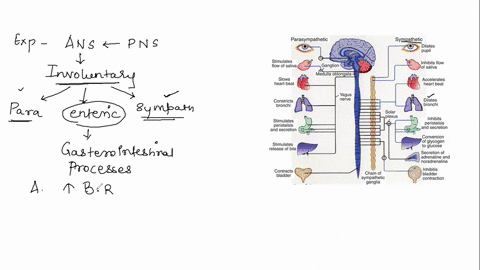 Exp - ANS ← PNS
Involuntary
Para enteric Sympath
Gasterointestinal
Processes
A. ↑ B.R
Parasympathetic
Sympathetic
Ganglion
Medulla oblongata
Vagus
nerve
Solar
plexus
Chain of
sympathetic
ganglia
Stimulates
flow of saliva
Slows
heart beat
Constricts
bronchi
Stimulates
peristalsis
and secretion
Stimulates
release of bile
Contracts
bladder
Dilates
pupil
Inhibits
flow of saliva
Accelerates
heart beat
Dilates
bronchi
Inhibits
peristalsis
and secretion
Conversion
of glycogen
to glucose
Secretion of
adrenaline and
noradrenaline
Inhibits
bladder
contraction